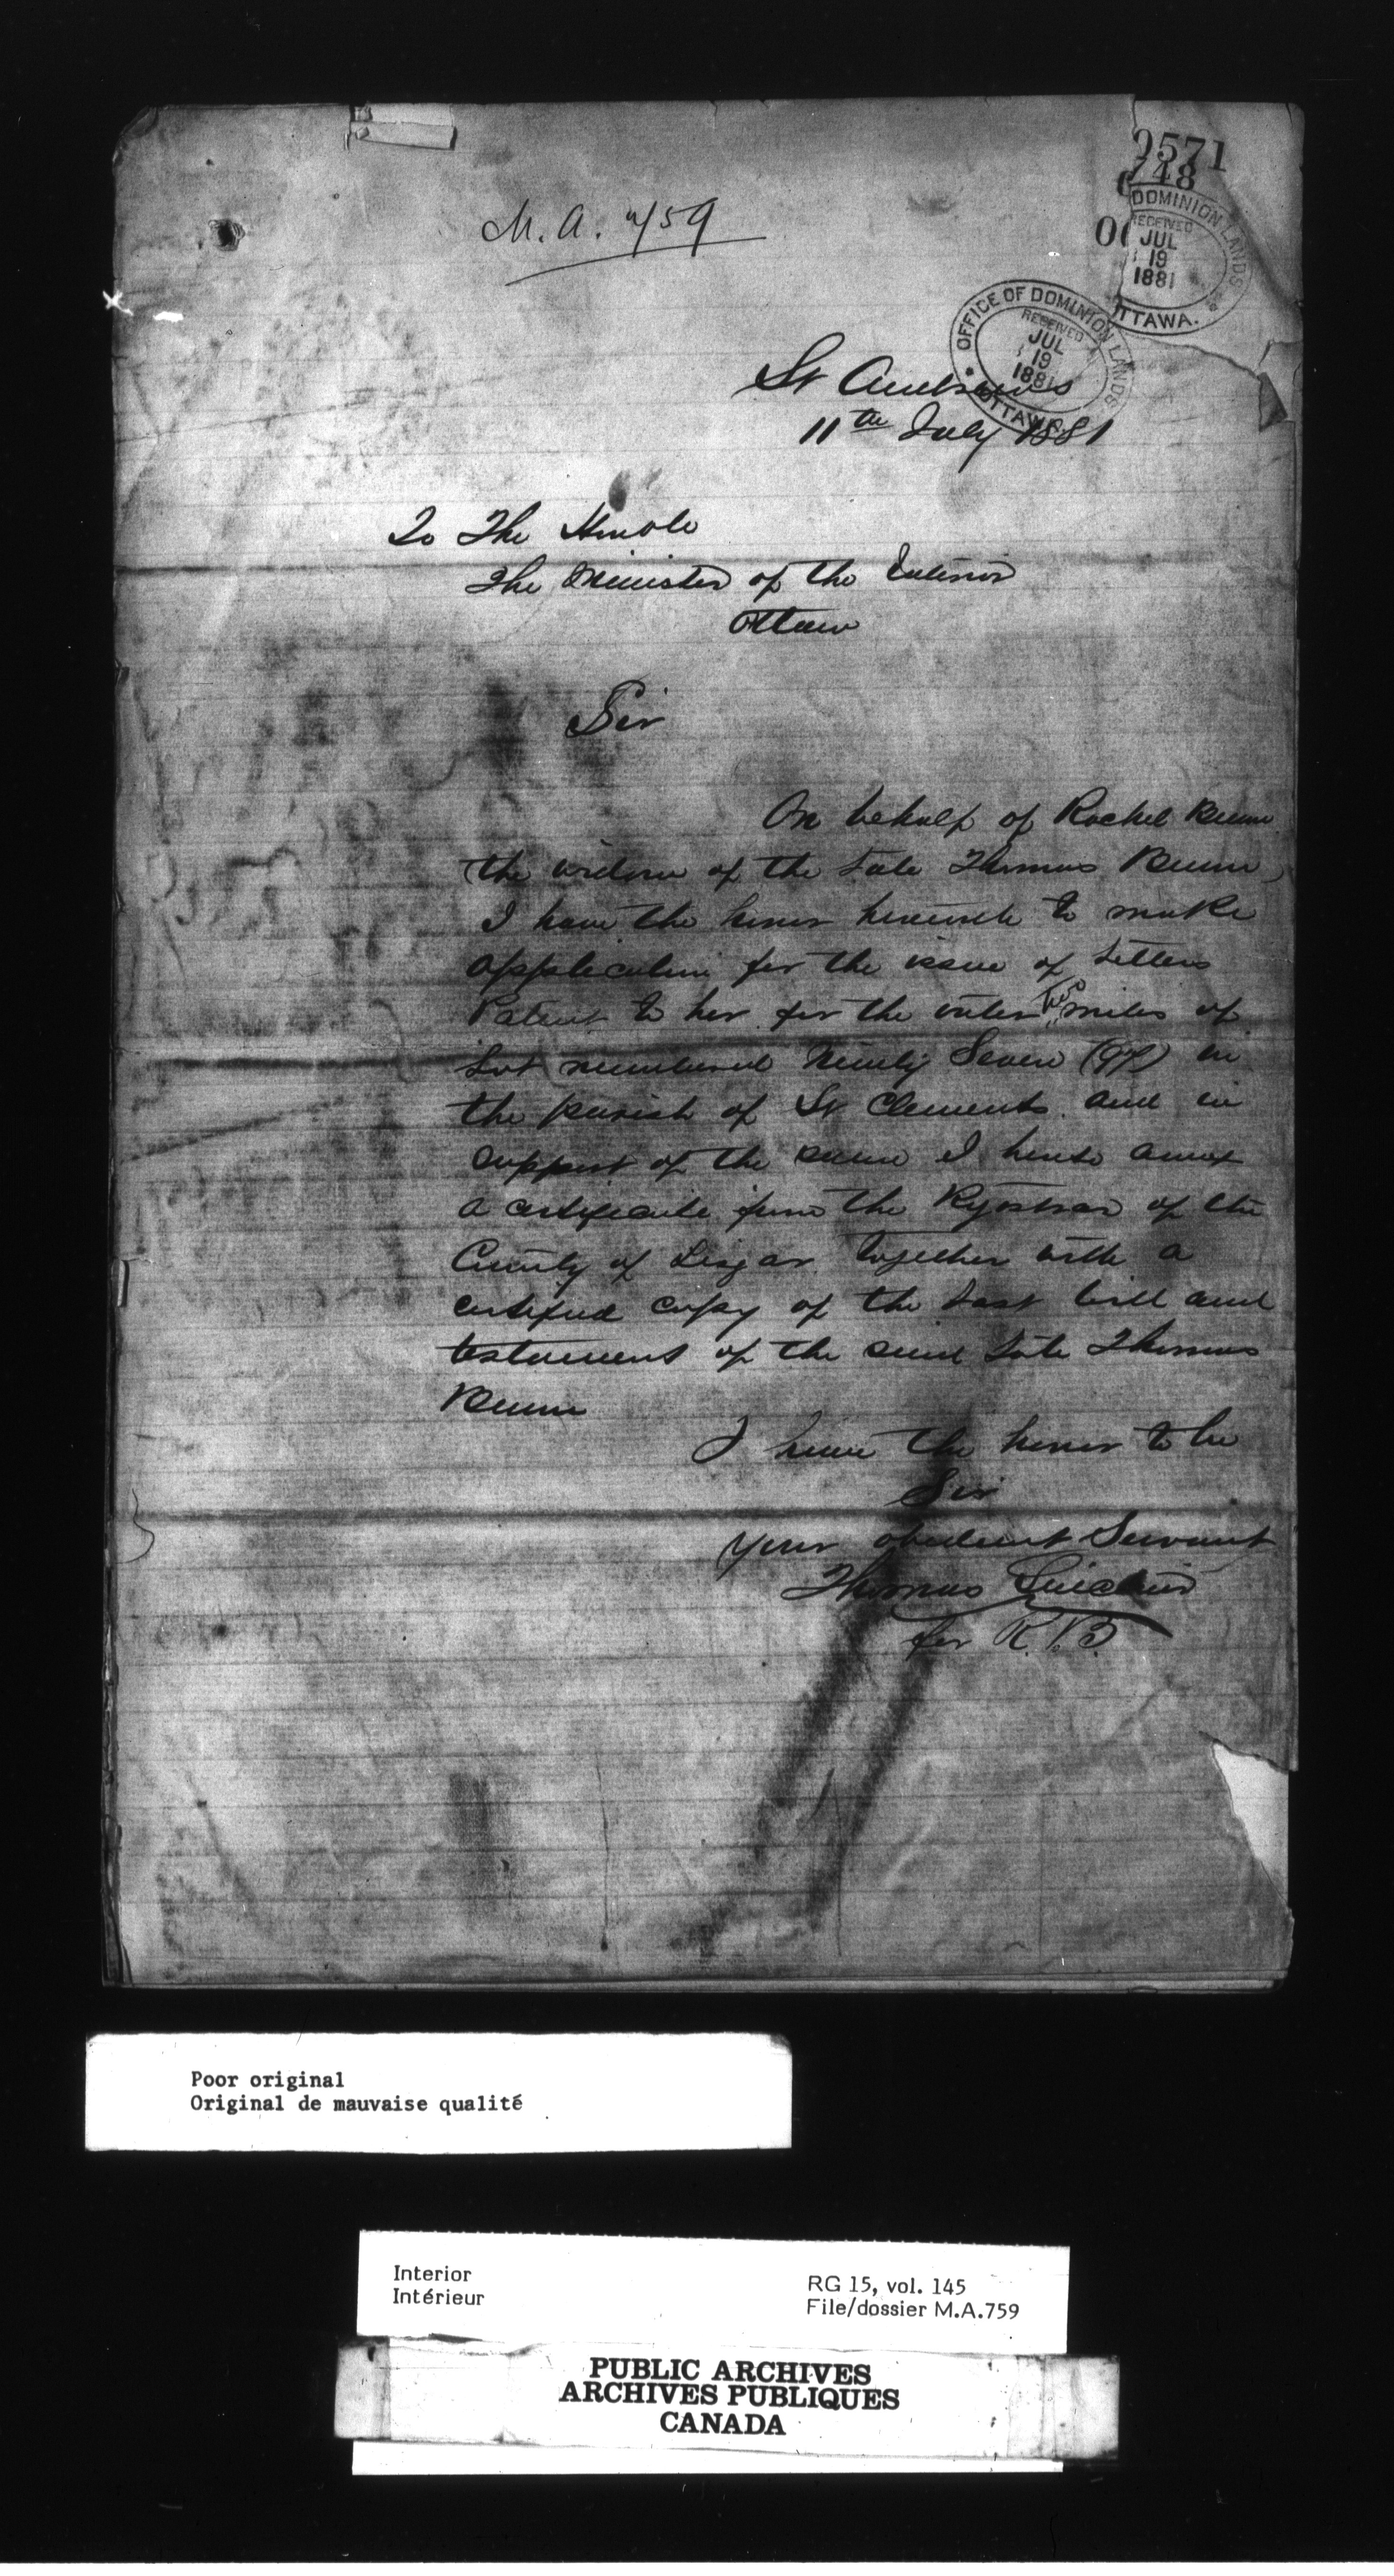 M.A. 759
9571
748
DOMINION LANDS
RECEIVED
JUL
19
1881
OTTAWA.
OFFICE OF DOMINION LANDS
RECEIVED
JUL
19
1881
OTTAWA
St Andrews
11th July 1881
To The Honble
The Minister of the Interior
Ottawa
Sir
On behalf of Rachel Bunn
the widow of the Late Thomas Bunn,
I have the honor herewith to make
application for the issue of Letters
Patent to her for the outer two miles of
Lot numbered Ninety Seven (97) in
the parish of St Clements and in
support of the same I hereto annex
a certificate from the Registrar of the
County of Lisgar together with a
certified copy of the Last Will and
testament of the said Late Thomas
Bunn
I have the honor to be
Sir
Your obedient Servant
Thomas Sinclair
for R.B.
Poor original
Original de mauvaise qualité
Interior
Intérieur
RG 15, vol. 145
File/dossier M.A.759
PUBLIC ARCHIVES
ARCHIVES PUBLIQUES
CANADA